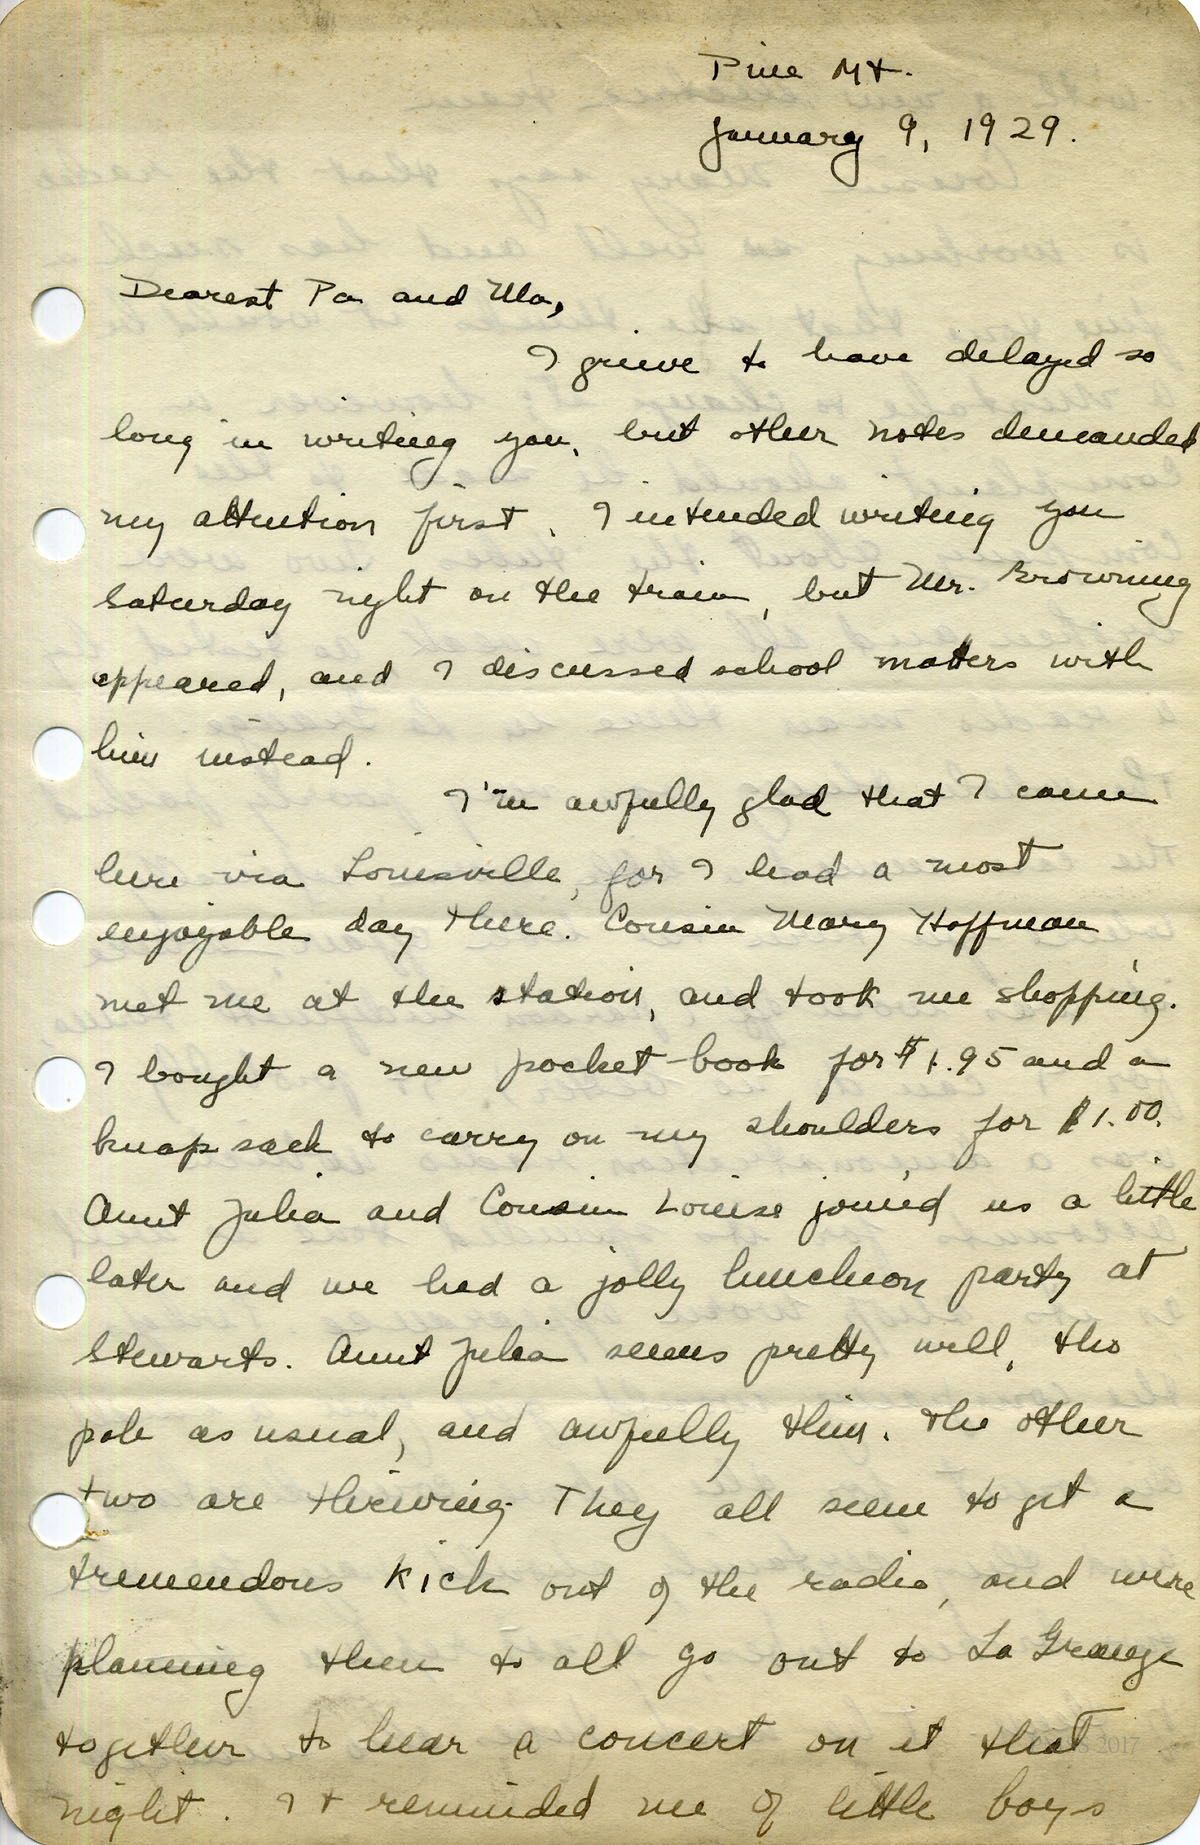 Pine Mt.
January 9, 1929.
Dearest Pa and Ma,
I grieve to have delayed so
long in writing you, but other notes demanded
my attention first. I intended writing you
Saturday night on the train, but Mr. Browning
appeared, and I discussed school matters with
him instead.
I'm awfully glad that I came
here via Louisville, for I had a most
enjoyable day there. Cousin Mary Hoffman
met me at the station, and took me shopping.
I bought a new pocket-book for $1.95 and a
knap sack to carry on my shoulders for $1.00.
Aunt Julia and Cousin Louise joined us a little
later and we had a jolly luncheon party at
Stewarts. Aunt Julia seems pretty well, tho
pale as usual, and awfully thin. The other
two are thriving. They all seem to get a
tremendous kick out of the radio, and were
planning then to all go out to La Grange
together to hear a concert on it that
night. It reminded me of little boys
2017